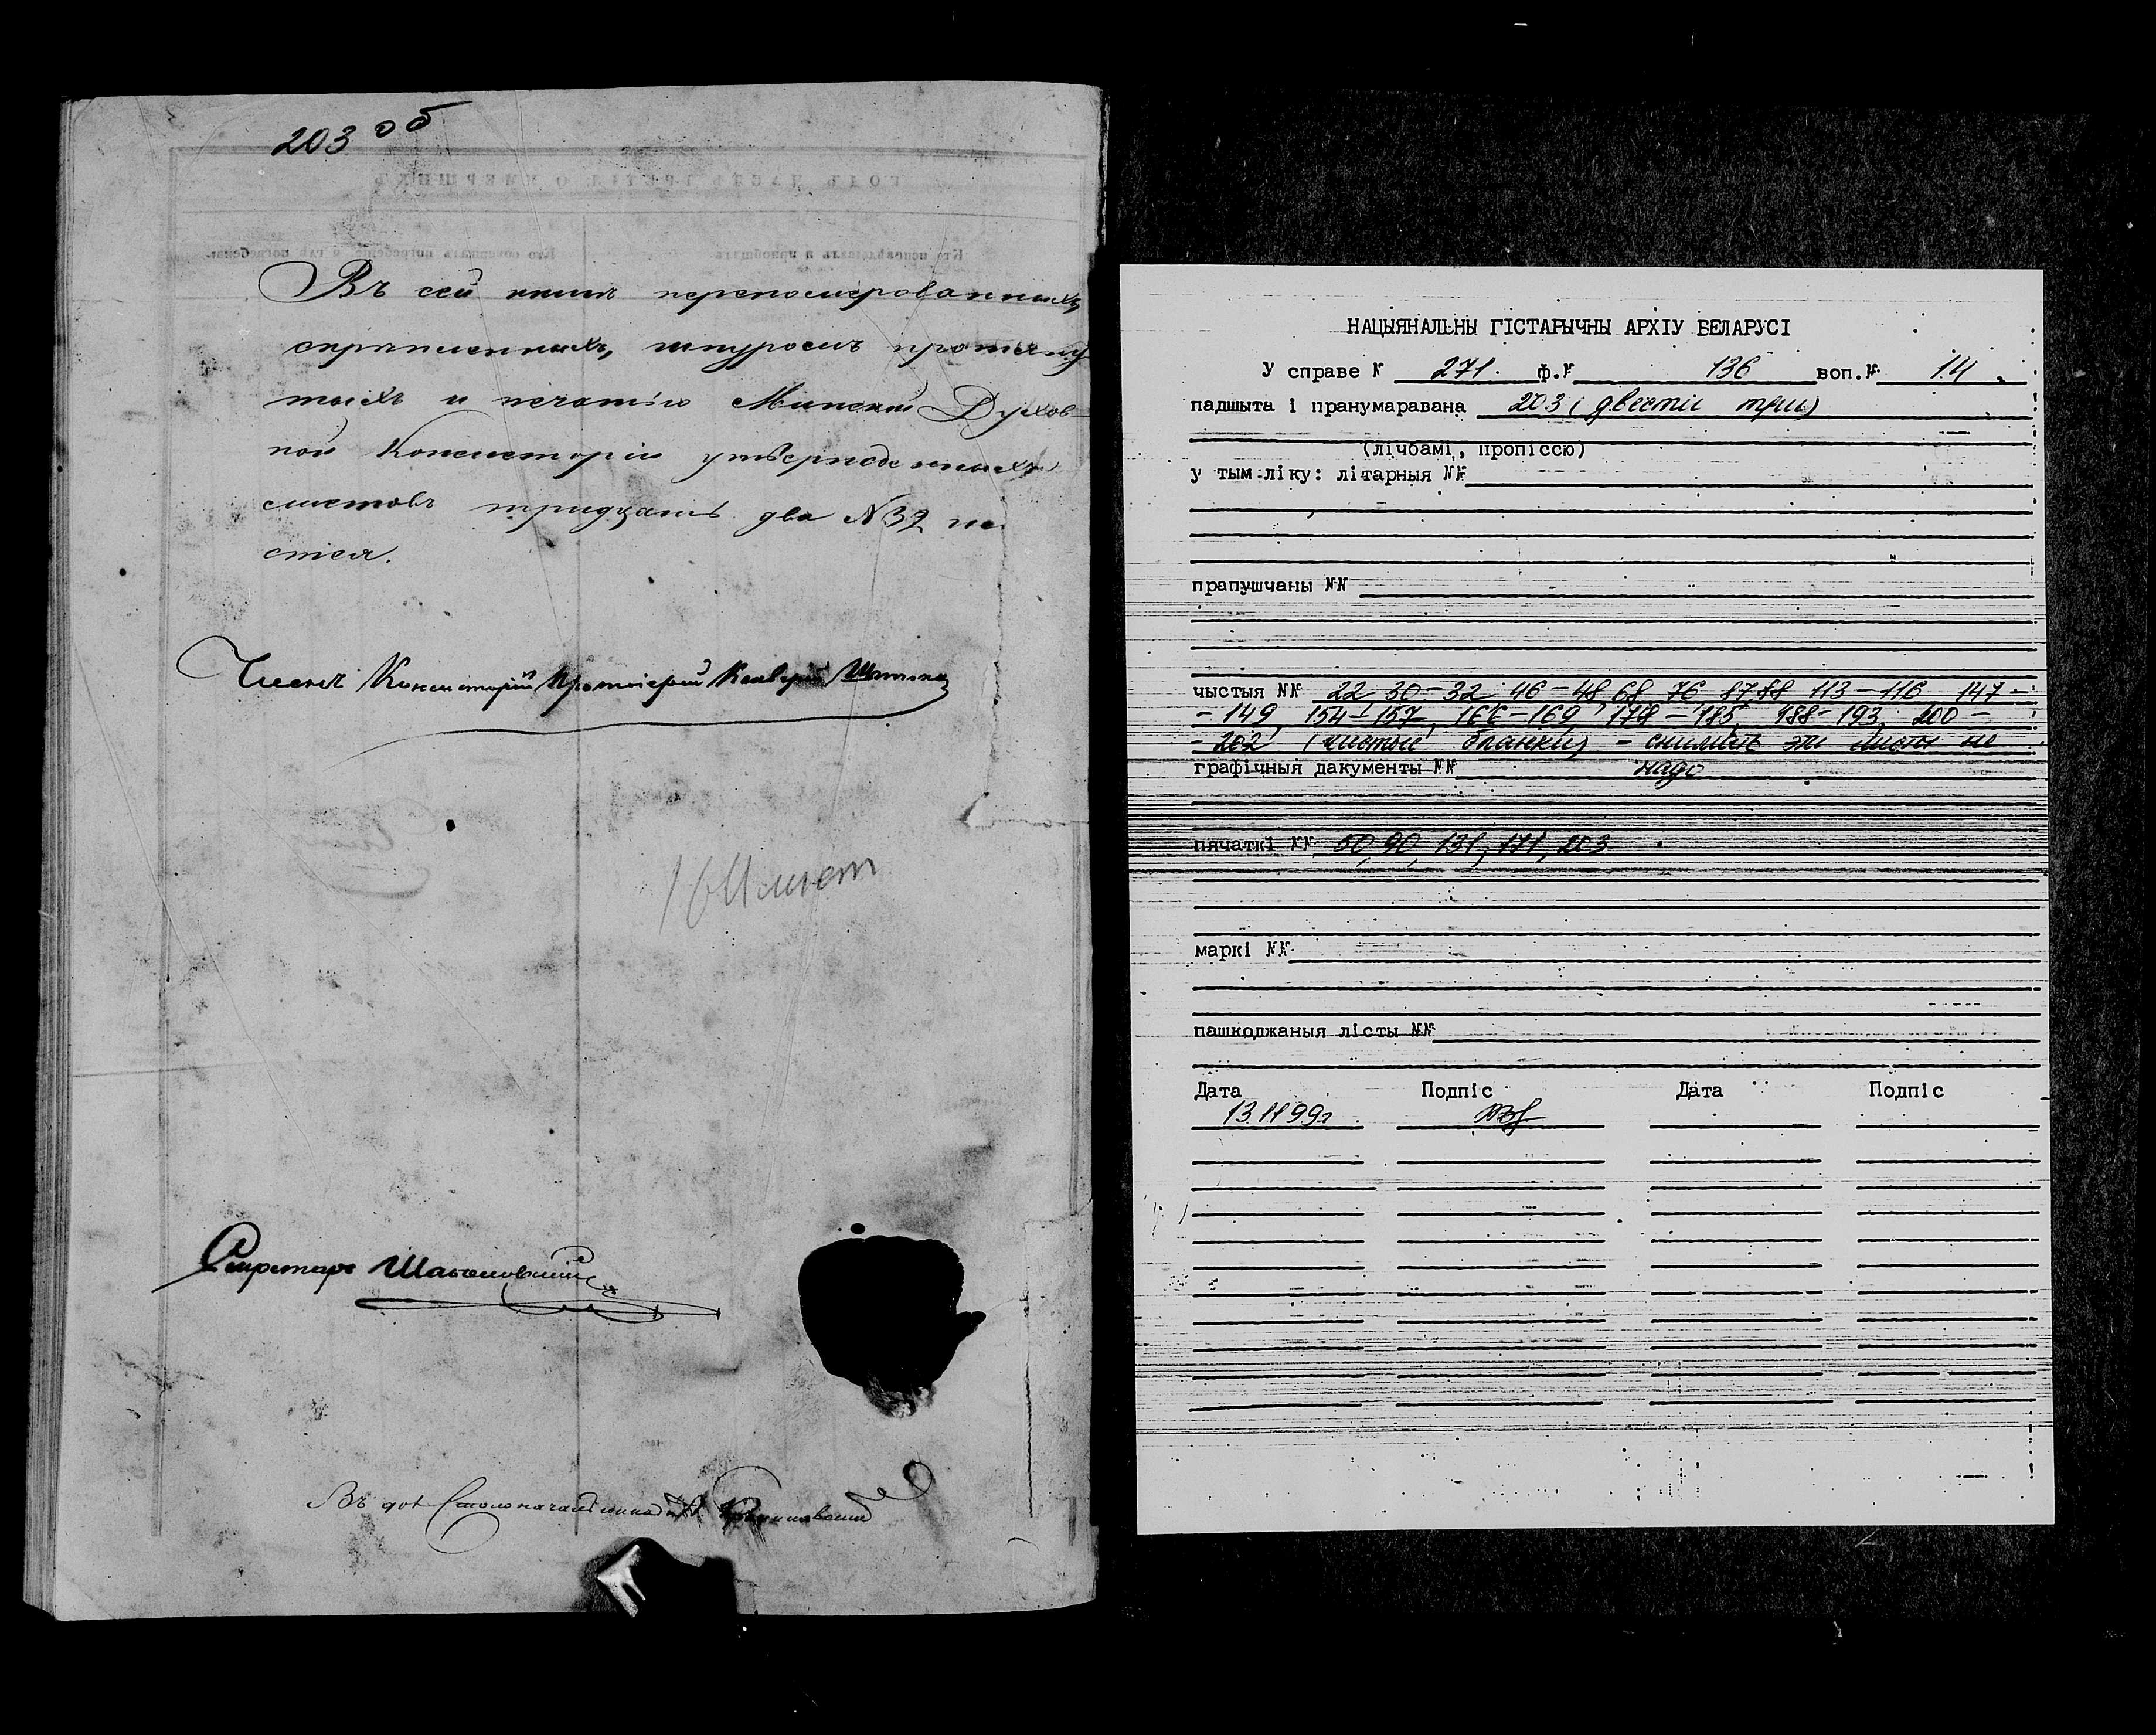 203 об
Въ сей книгѣ перенумерованныхъ,
скрѣпленныхъ, шнуромъ протяну
тыхъ и печатью Минской Духов
ной Консисторіи утвержденныхъ
листовъ тридцать два №32 ли
стъ.
Членъ Консисторіи Протоіерей
164 лист
Секретарь
Въ дол. Столоначальника
НАЦЫЯНАЛЬНЫ ГІСТАРЫЧНЫ АРХІУ БЕЛАРУСІ
У справе № 271. ф.№ 136 воп.№ 14
падшыта і пранумаравана 203 (двести три)
(лічбамі, пропіссю)
у тым ліку: літарныя №№
прапушчаны №№
чыстыя №№ 22, 30-32, 46-48, 68, 76, 87,88 113-116 147-
-149, 154-157, 166-169, 178-185, 188-193, 200-
-202 (чистые бланки) - снимать эти листы не
графічныя дакументы №№ надо
пячаткі №№ 50, 90, 131, 171, 203
маркі №№
пашкоджаныя лісты №№
Дата Подпіс Дата Подпіс
13.11 99г